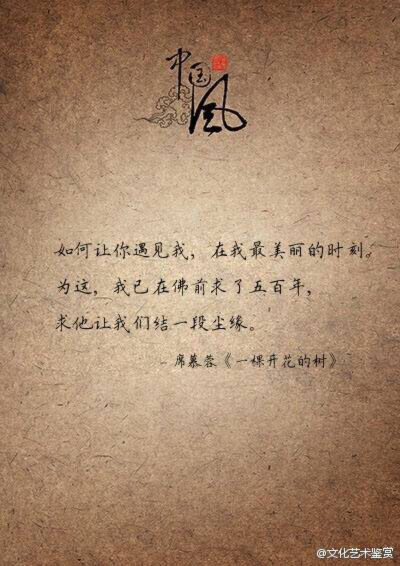 中国风
如何让你遇见我，在我最美丽的时刻。
为这，我已在佛前求了五百年，
求他让我们结一段尘缘。
- 席慕蓉《一棵开花的树》
@文化艺术鉴赏